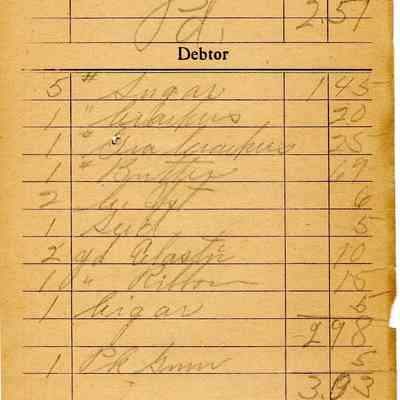 Pd. 2.51
Debtor
5 # Sugar 1 45
1 " Crackers 20
1 " Gra Crackers 25
1 " Butter 69
2 6
1 5
2 yd Elastic 10
1 " Ribbon 15
1 Cigar 5
2 98
1 Pk Gum 5
3.03